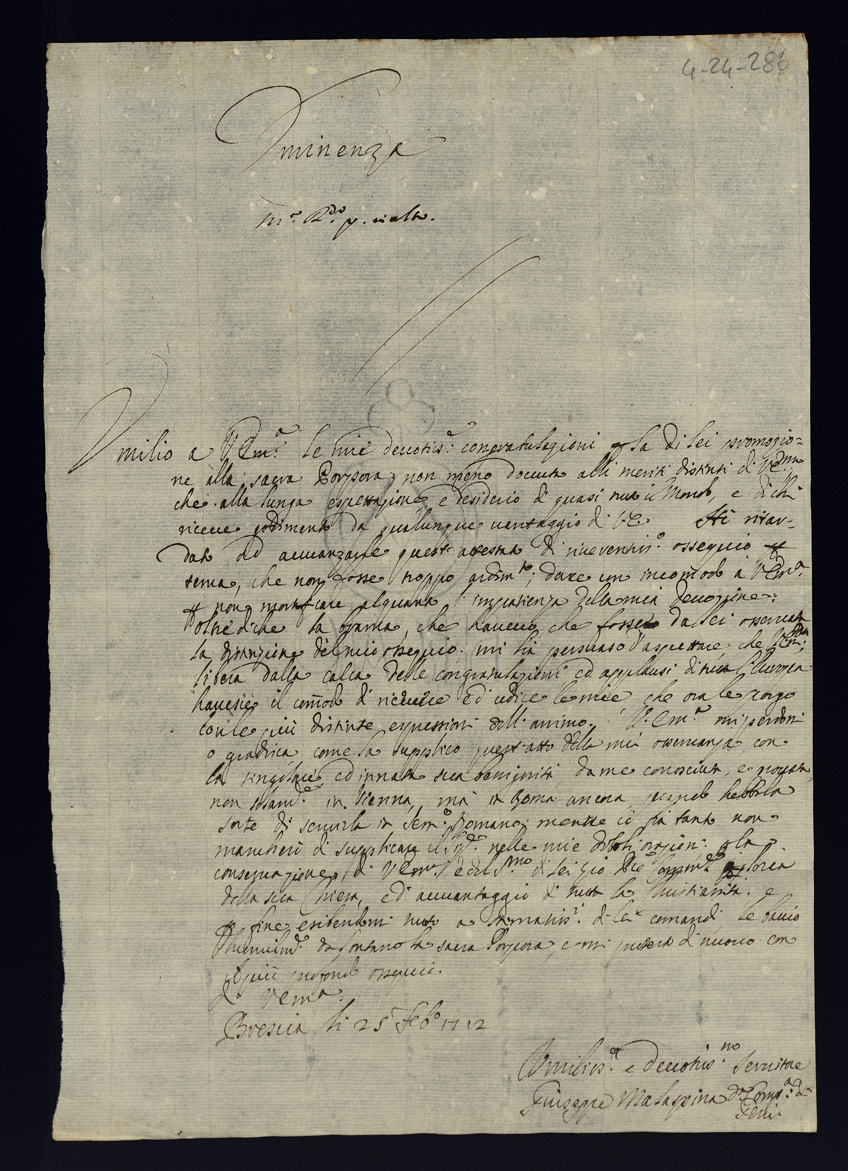 4-24-286
Eminenza
Umilio a V Em.ª le mie devotis.e congratulazioni la di lei promozio=
ne alla sacra Porpora, non meno dovuta alli meriti distinti di V Em.ª,
che alla lunga espettazione, e desiderio di quasi tutto il Mondo, e di chi
riceve godimento da qualunque vantaggio di VE. Hò ritar-
dato ad avvanzarle queste di riverentis.º ossequio
tema, che non fosse troppo ardim.to, dare un incomodo à V Em.ª
non mortificare alquanto l'impatienza della mia devozione:
oltre di che la brama, che havevo, che dal lei osservata
la distinzione del mio ossequio mi hà persuaso d'aspettare, che V Em.ª
libera dalla calca delle congratulazioni, ed applausi di tutta l'Europa
havesse il comodo di ricevere ed udire le mie, che ora le porgo
con le più distinte espressioni dell'animo. V. Em.ª mi perdoni
o gradisca come la supplico quest'atto della mia osservanza con
la singolare, ed innata sua benignità, da me conosciuta, e provata,
non in Vienna, mà in Roma ancora, quando hebbi la
sorte di servirla in Sem.º Romano; mentre io frà tanto non
mancherò di supplicare il Sig.re nelle mie orazioni la
conservazione di V Em.ª, e del di lei Zio
della sua Chiesa, ed avvantaggio di tutta la Christianità. e
fine esibendomi tutto a di lei comandi le bacio
Humilm.e da lontano la sacra Porpora, e mi di nuovo con
il più profondo ossequio.
di V Em.ª
Brescia li 25 Feb.º 1712
Umilis.º e devotis.mo Servitore
Giuseppe Malaspina d.ª Comp.ª di